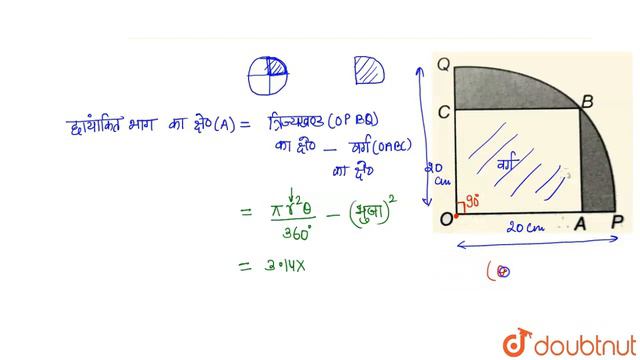 छायांकित भाग का क्षे०(A) = त्रिज्यखण्ड (OPBQ)
का क्षे० – वर्ग (OABC)
का क्षे०
= πr²θ/360° – (भुजा)²
= 3.14x
Q
C
B
वर्ग
20
cm
90°
O
A
P
20cm
doubtnut